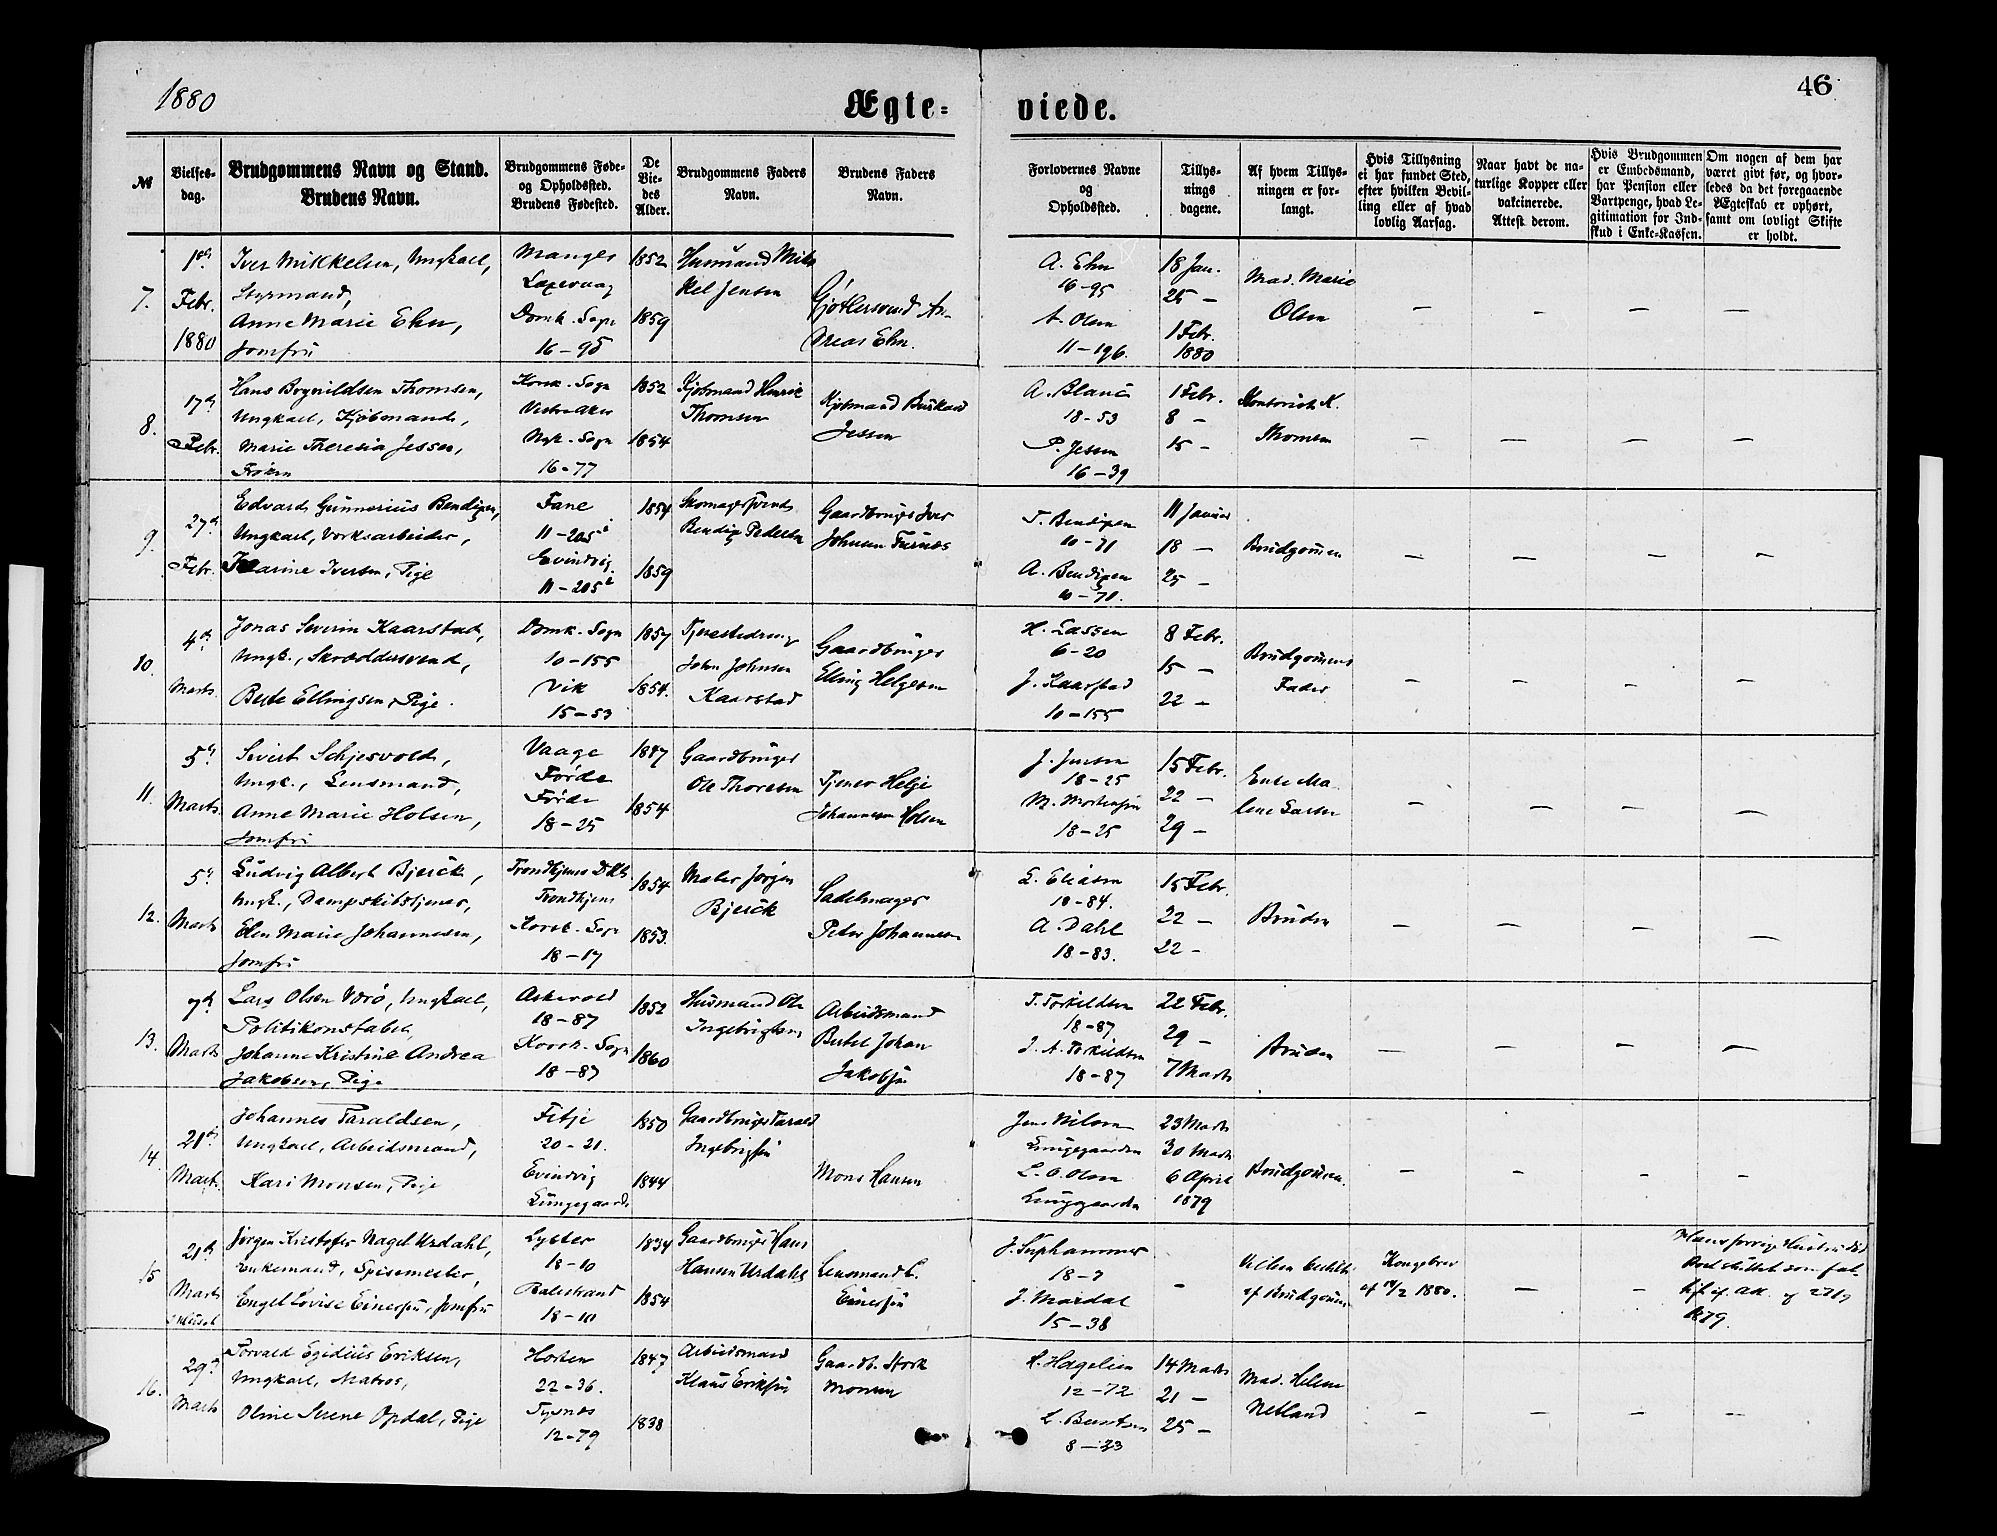 1880
46
Ægte-
viede.
№
Vielses-
dag.
Brudgommens Navn og Stand.
Brudens Navn.
Brudgommens Føde-
og Opholdssted.
Brudens Fødested.
De
Vie-
des
Alder.
Brudgommens Faders
Navn.
Brudens Faders
Navn.
Forlovernes Navne
og
Opholdssted.
Tillys-
nings
dagene.
Af hvem Tillys-
ningen er for-
langt.
Hvis Tillysning
ei har fundet Sted,
efter hvilken Bevil-
ling eller af hvad
lovlig Aarsag.
Naar havt de na-
turlige Kopper eller
vakcinerede.
Attest derom.
Hvis Brudgommen
er Embedsmand,
har Pension eller
Vartpenge, hvad Le-
gitimation for Ind-
skud i Enke-Kassen.
Om nogen af dem har
været givt før, og hvor-
ledes da det foregaaende
Ægteskab er ophørt,
samt om lovligt Skifte
er holdt.
7.
Febr.
1880
Iver Mikkelsen, Ungkarl,
Styrmand,
Anne Marie Ehn,
Jomfru
Manger
Laxevaag
Domk. Sogn
16-95
1852
1859
Husmand Mik
kel Jensen
Gjørtlersvend An-
dreas Ehn.
A. Ehn
16-95
A. Olsen
11-196.
18 Jan.
25 —
1 Febr.
1880
Mad. Marie
Olsen
8.
17de
Febr.
Hans Bognildsen Thomsen,
Ungkarl, Kjøbmand,
Marie Theresia Jessen,
Frøken
Korsk. Sogn
Vestre Aker
Nyk. Sogn
16-77
1852
1854
Kjøbmand Henrik
Thomsen
Kjøbmand
Jessen
18-53
P. Jessen
16-39
1 Febr.
8 —
15 —
Kontorist K.
Thomsen
9.
27de
Febr.
Edvard Gunnerius Bendixen,
Ungkarl, Verksarbeider,
Karine Iversen, Pige
Fane
11-205
Evindvig
11-205
1854
1859
Skomagersvend
Bendix Pedersen
Gaardbruger Iver
Johnsen Furnæs
T. Bendixen
10-71
A. Bendixen
10-71.
11 Januar
18 —
25 —
Brudgommen
10.
4de
Marts
Jonas Severin Kaarstad,
Ungk., Skræddersvend,
Berte Ellingsen, Pige.
Domk. Sogn
10-155
Vik
15-53
1857
1854.
John Johnsen
Kaarstad
Gaardbruger
Elling Helgesen
H. Lassen
6-20
J. Kaarstad
10-155
8 Febr.
15 —
22 —
Brudgommens
Fader
11.
5te
Marts
Sivert Schjesvold,
Ungk., Lensmand,
Anne Marie Holsen,
Jomfru
Vaage
Førde
Førde
18-25
1847
1854
Gaardbruger
Ole Thoresen
Tjener Helje
Johannesen Holsen
J. Jensen
18-25
M. Mortensen
18-25
15 Febr.
22 —
29 —
Enke Ma
lene Larsen
12.
5te
Marts
Ludvig Albert Bjerck,
Ungk., Dampskibstjener,
Elen Marie Johannesen,
Jomfru
Trondhjem
Korsk. Sogn
18-17
1854
1853.
Maler Jørgen
Bjerck
Sadelmager
Peter Johannesen
E. Eliasen
10-84.
A. Dahl
18-83.
15 Febr.
22 —
22 —
Bruden
13.
7de
Marts
Lars Olsen Værø, Ungkarl,
Politikonstabel,
Johanne Kristine Andrea
Jakobsen, Pige
Askevold
18-87
Korsk. Sogn
18-87
1852
1860
Husmand Ole
Ingebrigtsen
Arbeidsmand
Bertel Johan
Jakobsen
T. Torkildsen
18-87
J. A. Torkildsen
18-87
22 Febr.
29 —
7 Marts
Bruden
14.
21de
Marts
Johannes Taraldsen,
Ungkarl, Arbeidsmand,
Kari Monsen, Pige
Fitje
20-21.
Evindvig
Lungegaard.
1850
1844
Gaardbruger Tarald
Ingebrigtsen
Mons Hansen
Jens Nilsen
Lungegaarden
L. O. Olsen
Lungegaarden
23 Marts
30 Marts
6 April
1879
Brudgommen.
15
21de
Marts
Jørgen Kristofer Nagel Urdahl,
Enkemand, Spisemester,
Engel Lovise Einersen, Jomfru
Lyster
18-10
Balestrand
18-10
1834
1854
Gaardbruger Hans
Hansen Urdahl
Lensmand C.
Einersen
18-7
J. Mardal
15-38
af Brudgommen
Kongebrev
af /2 1880.
Hans forrige Hustru død
1879.
16.
29de
Marts
Torvald Egidius Eriksen,
Ungkarl, Matros,
Oline Serene Opdal, Pige
Horten
22-36.
Tysnæs
12-79
1847
1838
Arbeidsmand
Klaus Eriksen
Gaardb. Stork
Monsen
H. Hagelien
12-72
L. Berntsen
8-73
14 Marts
21 —
25 —
Mad. Helene
Netland